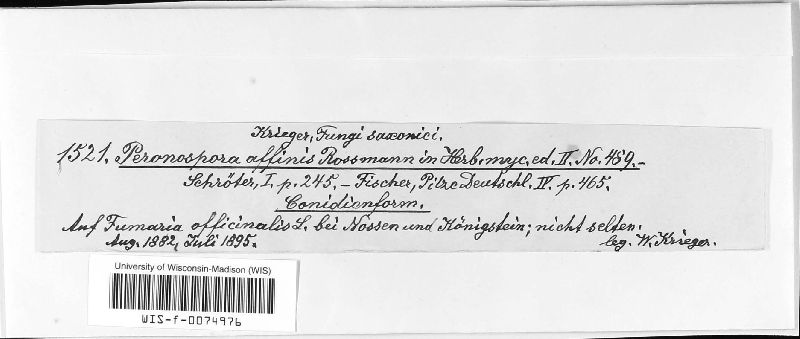 Krieger, Fungi saxonici.
1521. Peronospora affinis Rossmann in Herb. myc. ed. II. No. 489.-
Schröter, I. p. 245. - Fischer, Pilze Deutschl. IV. p. 465.
Conidienform.
Auf Fumaria officinalis L. bei Nossen und Königstein; nicht selten.
Aug. 1882, Juli 1895. leg. W. Krieger.
University of Wisconsin-Madison (WIS)
WIS-f-0074976